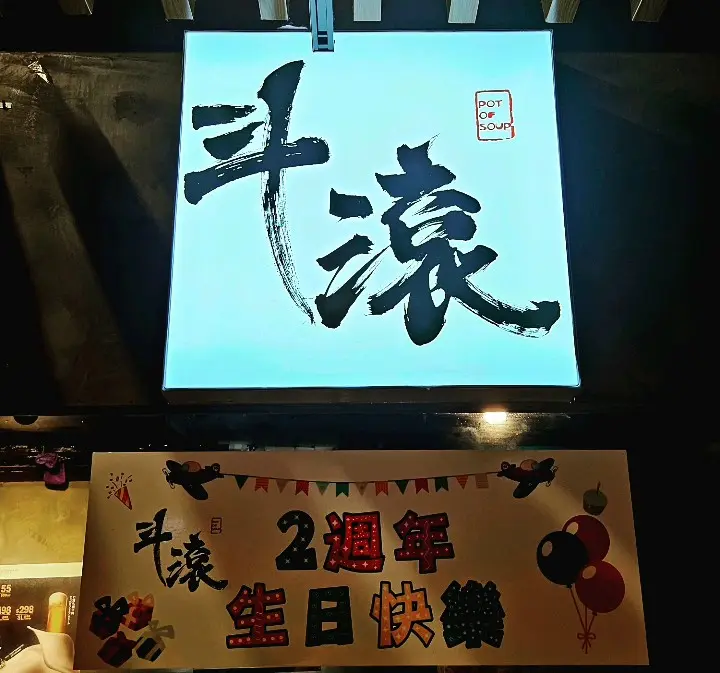 斗滾
POT
OF
SOUP
斗滾
2週年
生日快樂
$298